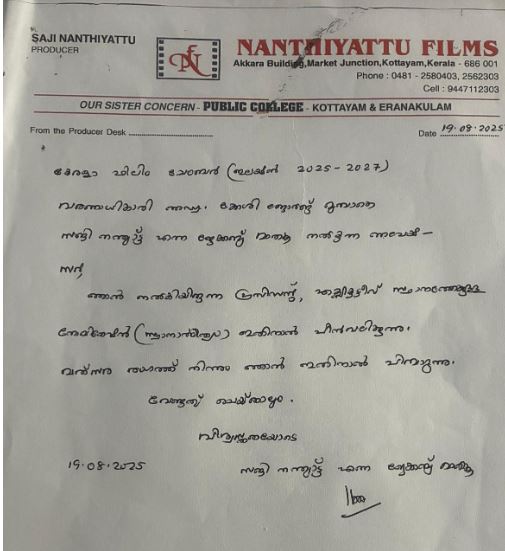 SAJI NANTHIYATTU
PRODUCER
NANTHIYATTU FILMS
Akkara Building, Market Junction, Kottayam, Kerala - 686 001
Phone : 0481 - 2580403, 2562303
Cell : 9447112303
OUR SISTER CONCERN - PUBLIC COLLEGE - KOTTAYAM & ERANAKULAM
From the Producer Desk
Date 19.08.2025
കേരളാ ഫിലിം ചേമ്പർ (ഇലക്ഷൻ 2025-2027)
വരണാധികാരി അഡ്വ. മുമ്പാകെ
സജി നന്ത്യാട്ട് എന്ന ജേക്കബ്ബ് മാത്യു നൽകുന്ന അപേക്ഷ-
സർ,
ഞാൻ നൽകിയിരുന്ന പ്രസിഡന്റ്, എക്സിക്യൂട്ടീവ് സ്ഥാനത്തേക്കുള്ള
നോമിനേഷൻ ഇതിനാൽ പിൻവലിക്കുന്നു.
മത്സര രംഗത്ത് നിന്നും ഞാൻ ഇതിനാൽ പിന്മാറുന്നു.
വേണ്ടത് ചെയ്താലും.
വിശ്വസ്തതയോടെ
19.08.2025
സജി നന്ത്യാട്ട് എന്ന ജേക്കബ്ബ് മാത്യു